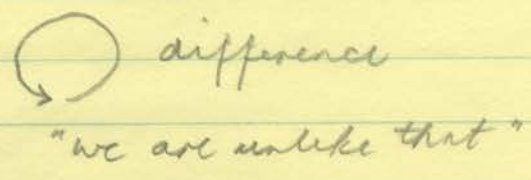 difference
"we are unlike that"